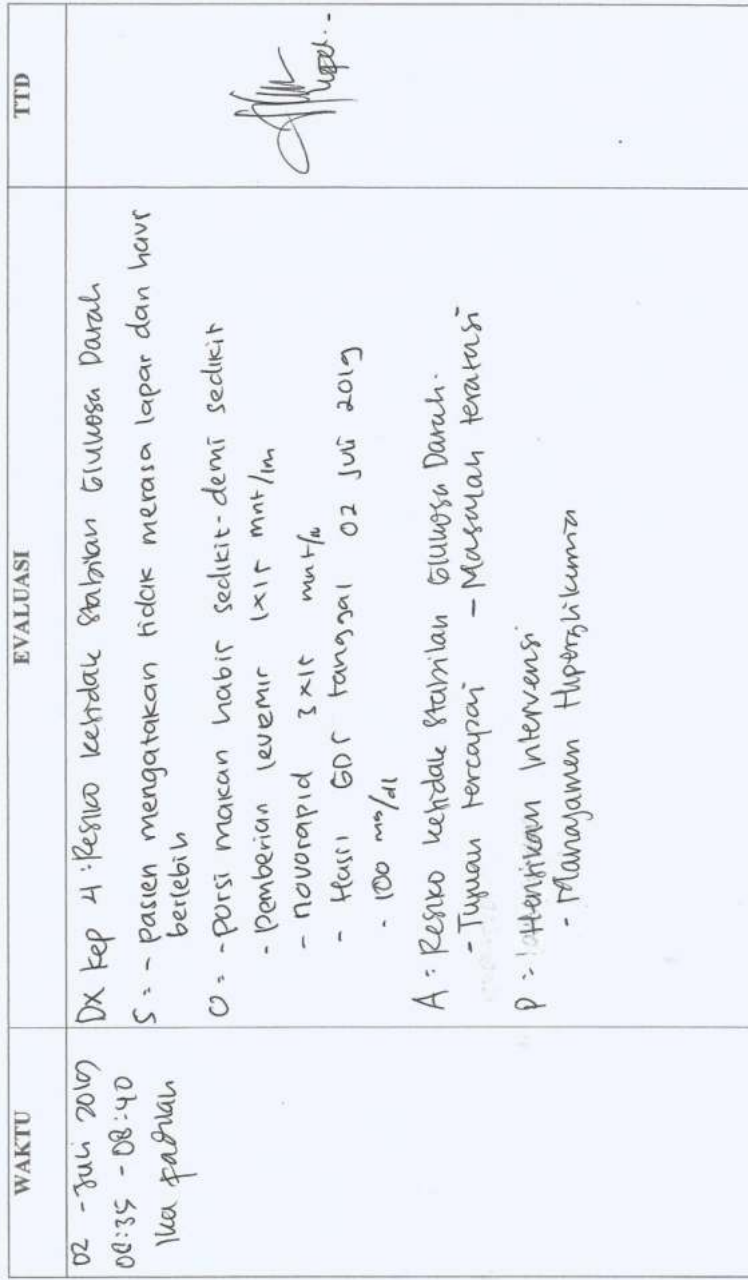 WAKTU
EVALUASI
TTD
02 - Juli 2019
08:35 - 08:40
Ika Fadilah
Dx kep 4 : Resiko ketidak stabilan Glukosa Darah
S : - pasien mengatakan tidak merasa lapar dan haus
berlebih
O : - porsi makan habis sedikit-demi sedikit
- pemberian levemir 1x15 mnt/im
- novorapid 3x15 mnt/
- Hasil GDS tanggal 02 Juli 2019
- 100 mg/dl
A : Resiko ketidak stabilan Glukosa Darah.
- Tujuan tercapai - Masalah teratasi
P : Hentikan Intervensi
- Manajamen Hiperglikemia